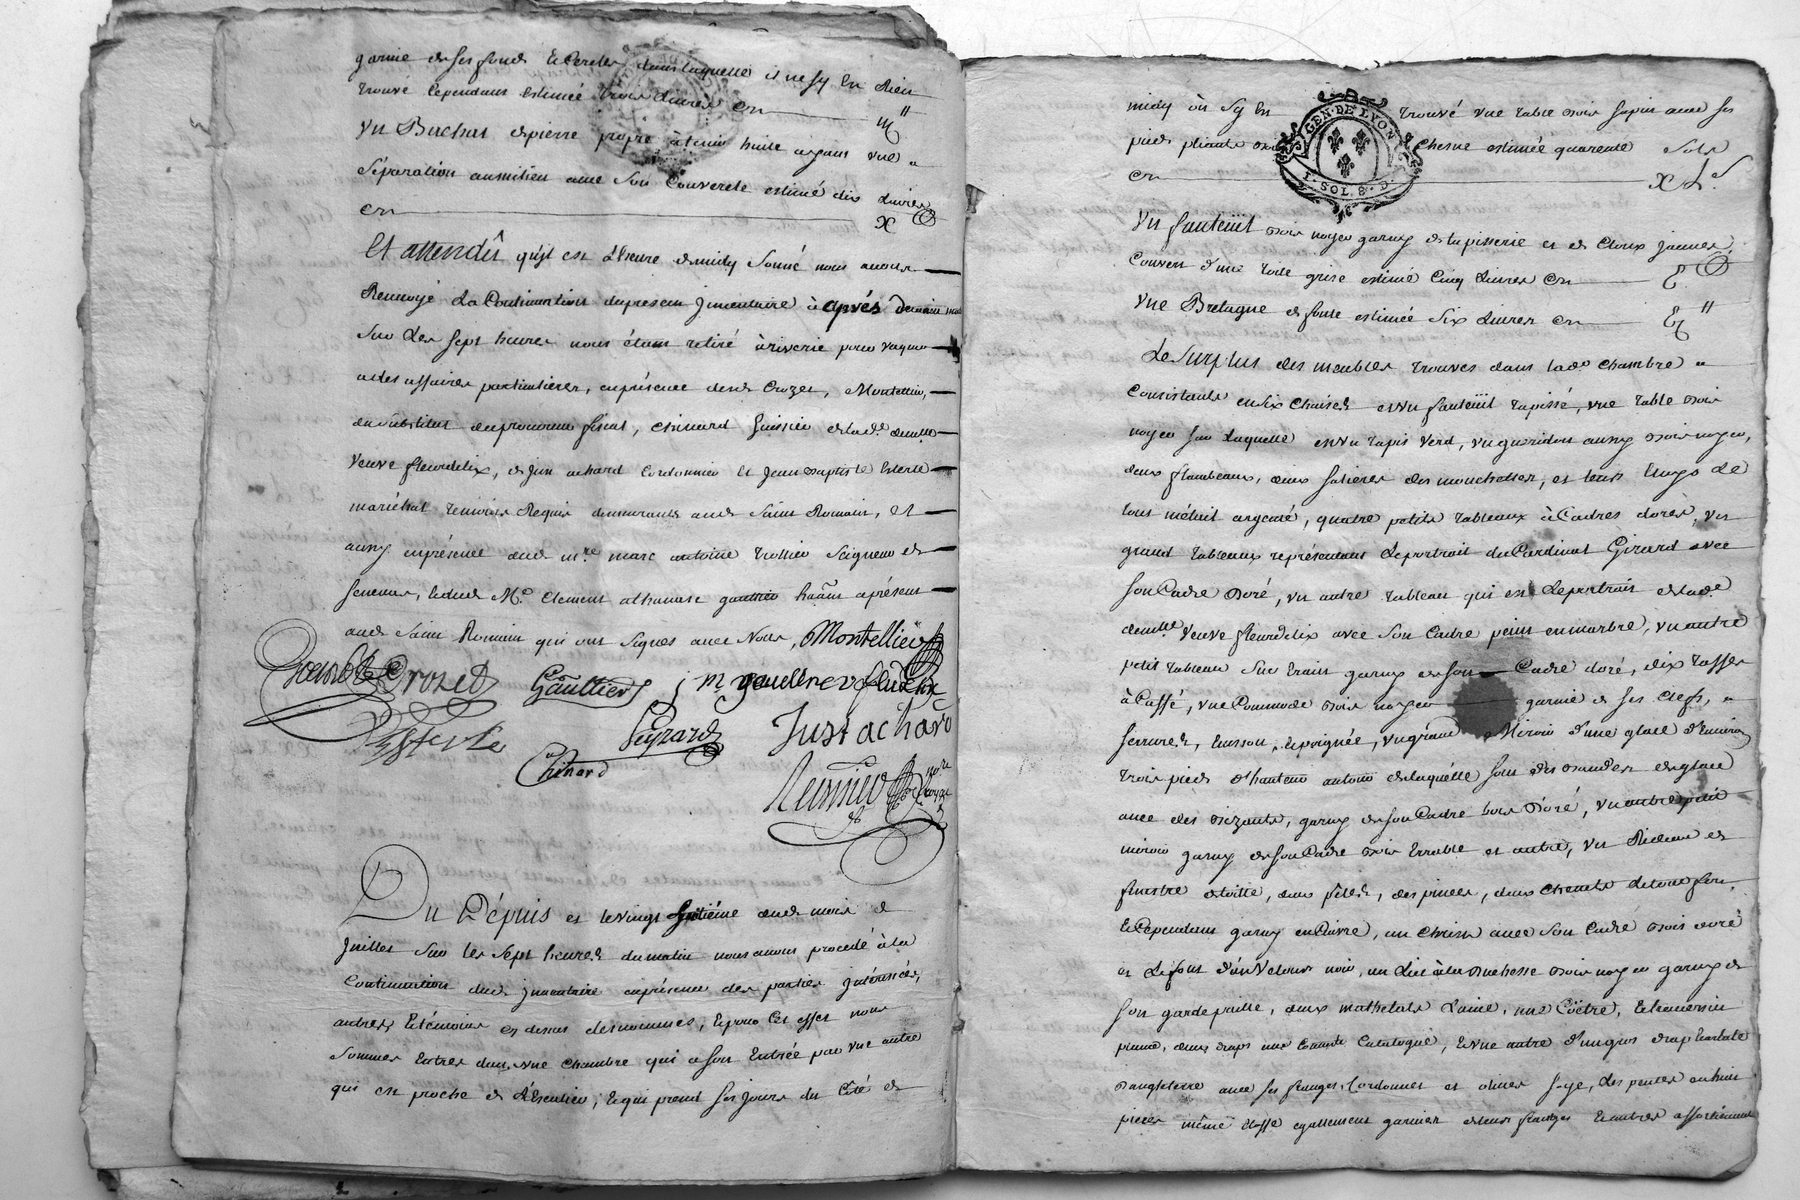 garnie de ses fonds et Cercles dans laquelle il ne sy En Rien
trouvé Cependant Estimée trois Livres en
Un Bachat de pierre propre à tenir huile ayant une
Séparation au milieu avec Son Couvercle estimé dix Livres
en X
Et attendû qu'il est L'heure de midy Sonné nous avons
Renvoyé La Continuation du present Inventaire à après demain
Sur Les Sept heures nous étant retiré à riverie pour vaquer
a des affaires particulieres, en présence desd. Crozet, Montellier,
du Substitut du procureur fiscal, Chinard huissier de lad.e dem.lle
veuve fleurdelix, de Just achard Cordonnier Et Jean Baptiste
maréchal temoins Requis demeurants aud. Saint Romain, Et
aussy en présence dud. m.re marc antoine trollier Seigneur de
Senevas, led. M.e Clement athanase gauthier aprésent
aud. Saint Romain qui ont Signés avec Nous, Montellier
Crozet Gaultier j m gaudene v. fleurdelix
Peyrard Just achard
Chinard
Du Dépuis et le vingt huitiéme dud. mois de
Juillet Sur les Sept heures du matin nous avons procedé à la
Continuation dud. Inventaire en présence des parties Intéressées,
autres Et témoins cy dessus dénommés, Et pour Cet effet nous
Sommes Entrés dans une Chambre qui a son Entrée par une autre
qui est proche de L'Escalier, Et qui prend Ses Jours du Côté de
midy où Sy En trouvé une table bois Sapin avec ses
pieds pliants Chesne estimée quarente Sols
GEN. DE LYON
1. SOL 8. D.
en XL s
Un fauteüil bois noyer garny de tapisserie et de Cloux jaunes
Couvert d'une toile grise estimé Cinq Livres en
Une Bretagne de fonte estimée Six Livres en
Le Surplus des meubles trouvés dans lad.e Chambre
Consistants en Six Chaises en un fauteüil tapissé, une table bois
noyer Sur Laquelle en un tapis verd, un gueridon aussy bois noyer,
deux flambeaux, deux Salieres des mouchettes, et leurs
tous métail argenté, quatre petits tableaux à Cadres dorés, un
grand tableaux représentant Le portrait du Cardinal Girard avec
Son Cadre Doré, un autre tableau qui est Le portrait de lad.e
dem.lle Veuve fleurdelix avec Son Cadre peint en marbre, un autre
petit tableau garny de Son Cadre doré, dix tasses
à Caffé, une Commode bois noyer garnie de ses Clefs,
Serrures, Ecusson, Et poignée, un grand Miroir d'une glace d'Environ
trois pieds d'hauteur autour de laquelle Sont des bandes de glace
avec des bizeaux, garny de Son Cadre bois Doré, un autre petit
miroir garny de Son Cadre bois Errable et autre, un Rideau de
finestre de toille, deux pelles, des pinces, deux Chenets de tout fer,
Et Cependant garny en Cuivre, un Christ avec Son Cadre bois doré
et Le fond d'un Velours noir, un Lict à la Duchesse bois noyer garny de
Son garde paille, deux mathelats Laine, une Coëtre, Et traversin
plume, deux draps une Catalogne, Et une autre d'un gros drap Ecarlate
d'angleterre avec ses franges, Cordonnet et olives Soye, des pentes en huit
pieces même étoffe egallement garnies de leurs franges Et autres assortiment